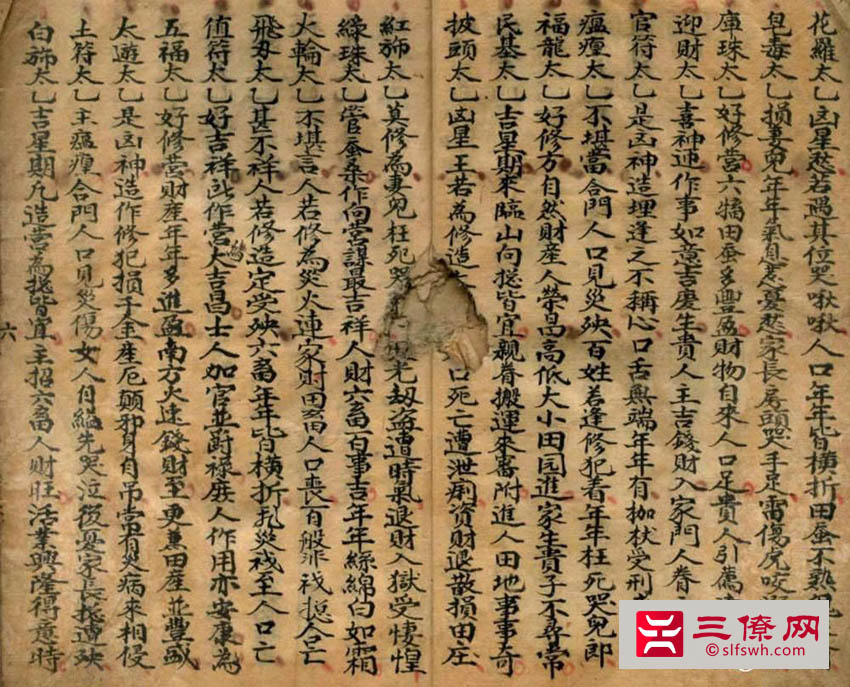 花羅太乙凶星愁若遇其位哭啾啾人口年年皆橫折田蚕不熟
皂毒太乙損妻兒年年氣息惹憂愁家長房頭哭手足雷傷虎咬
庫珠太乙好修營六犕田蚕多豐盈財物自來人口足貴人引薦
迎財太乙喜神迎作事如意吉慶生貴人主吉錢財入家門人眷
官符太乙是凶神造埋逢之不稱心口舌無端年年有枷杖受刑
瘟瘟太乙不堪當合門人口見災殃百姓若逢修犯着年年枉死哭兒郎
福龍太乙好修方自然財産人榮昌高低大小田园進家生貴子不尋常
民基太乙吉星期來臨山向揔皆宜親眷搬運來書附進人田地事事奇
披頭太乙凶星王若為修造口死亡遭泄痢資財退散損田庄
紅斾太乙莫修為妻兒枉死哭光刼盗遭時氣退財入獄受悽惶
綠珠太乙管蚕桑作向營謀最吉祥人財六畜百事吉年年絲綿白如霜
火輪太乙不堪言人若修為災火連家財田畜人口喪百般非禍揔合亡
飛刄太乙甚不祥人若修造定受殃六畜年年皆橫折孔災禍至人口亡
值符太乙好吉祥此作營修大吉昌士人加官並爵祿庶人作用亦安康為
五福太乙好修營財産年年多進盈南方火速錢財至更兼田産並豐盛
太遊太乙是凶神造作修犯損子金産厄顛邪身自吊常有災病來相侵
土符太乙主瘟瘟合門人口見災傷女人自縊先哭泣後憂家長抵遭殃
白斾太乙吉星期凢造營為揔皆宜主招六畜人財旺活業興隆得意時
六
三僚网
slfswh.com